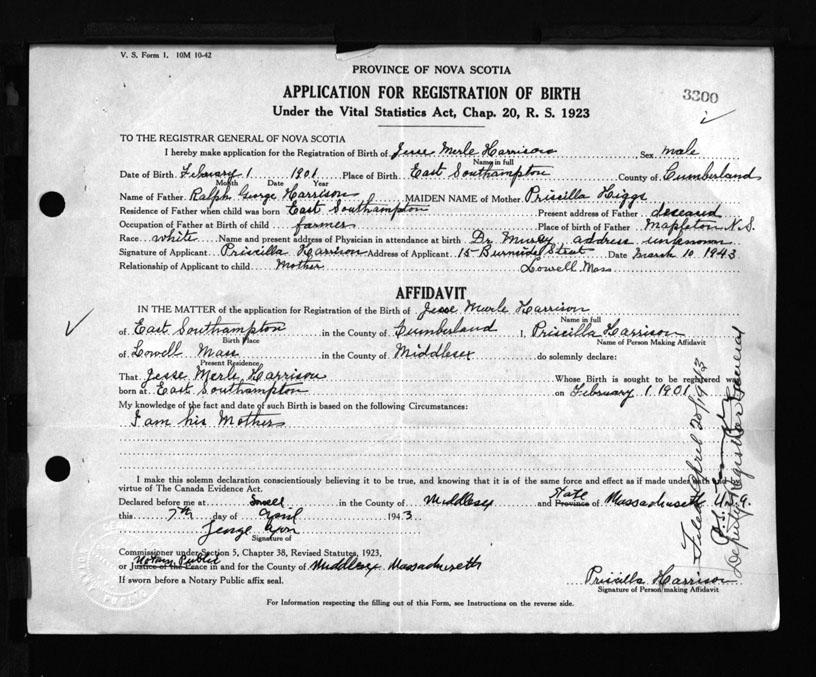 V. S. Form 1. 10M 10-42
PROVINCE OF NOVA SCOTIA
APPLICATION FOR REGISTRATION OF BIRTH
3300
Under the Vital Statistics Act, Chap. 20, R. S. 1923
TO THE REGISTRAR GENERAL OF NOVA SCOTIA
I hereby make application for the Registration of Birth of Jesse Merle Harrison Sex male
Name in full
Date of Birth February 1 1901 Place of Birth East Southampton County of Cumberland
Month Date Year
Name of Father Ralph George Harrison MAIDEN NAME of Mother Priscilla Higgs
Residence of Father when child was born East Southampton Present address of Father deceased
Occupation of Father at Birth of child farmer Place of birth of Father Mapleton N.S.
Race white Name and present address of Physician in attendance at birth Dr address unknown
Signature of Applicant Priscilla Harrison Address of Applicant 15 Burnside Street Date March 10 1943
Relationship of Applicant to child Mother Lowell Mass
AFFIDAVIT
IN THE MATTER of the application for Registration of the Birth of Jesse Merle Harrison
Name in full
of East Southampton in the County of Cumberland I, Priscilla Harrison
Birth Place Name of Person Making Affidavit
of Lowell Mass in the County of Middlesex do solemnly declare:
Present Residence
That Jesse Merle Harrison Whose Birth is sought to be registered was
born at East Southampton on February 1 1901
My knowledge of the fact and date of such Birth is based on the following Circumstances:
I am his Mother
I make this solemn declaration conscientiously believing it to be true, and knowing that it is of the same force and effect as if made under oath and by
virtue of The Canada Evidence Act.
State
Declared before me at Lowell in the County of Middlesex and Province of Massachusetts U.S.A.
this 7th day of April 1943
George
Signature of
Commissioner under Section 5, Chapter 38, Revised Statutes, 1923,
Notary Public
or Justice of the Peace in and for the County of Middlesex Massachusetts
If sworn before a Notary Public affix seal.
Priscilla Harrison
Signature of Person making Affidavit
For Information respecting the filling out of this Form, see Instructions on the reverse side.
Filed April 20/1943
Deputy Registrar General